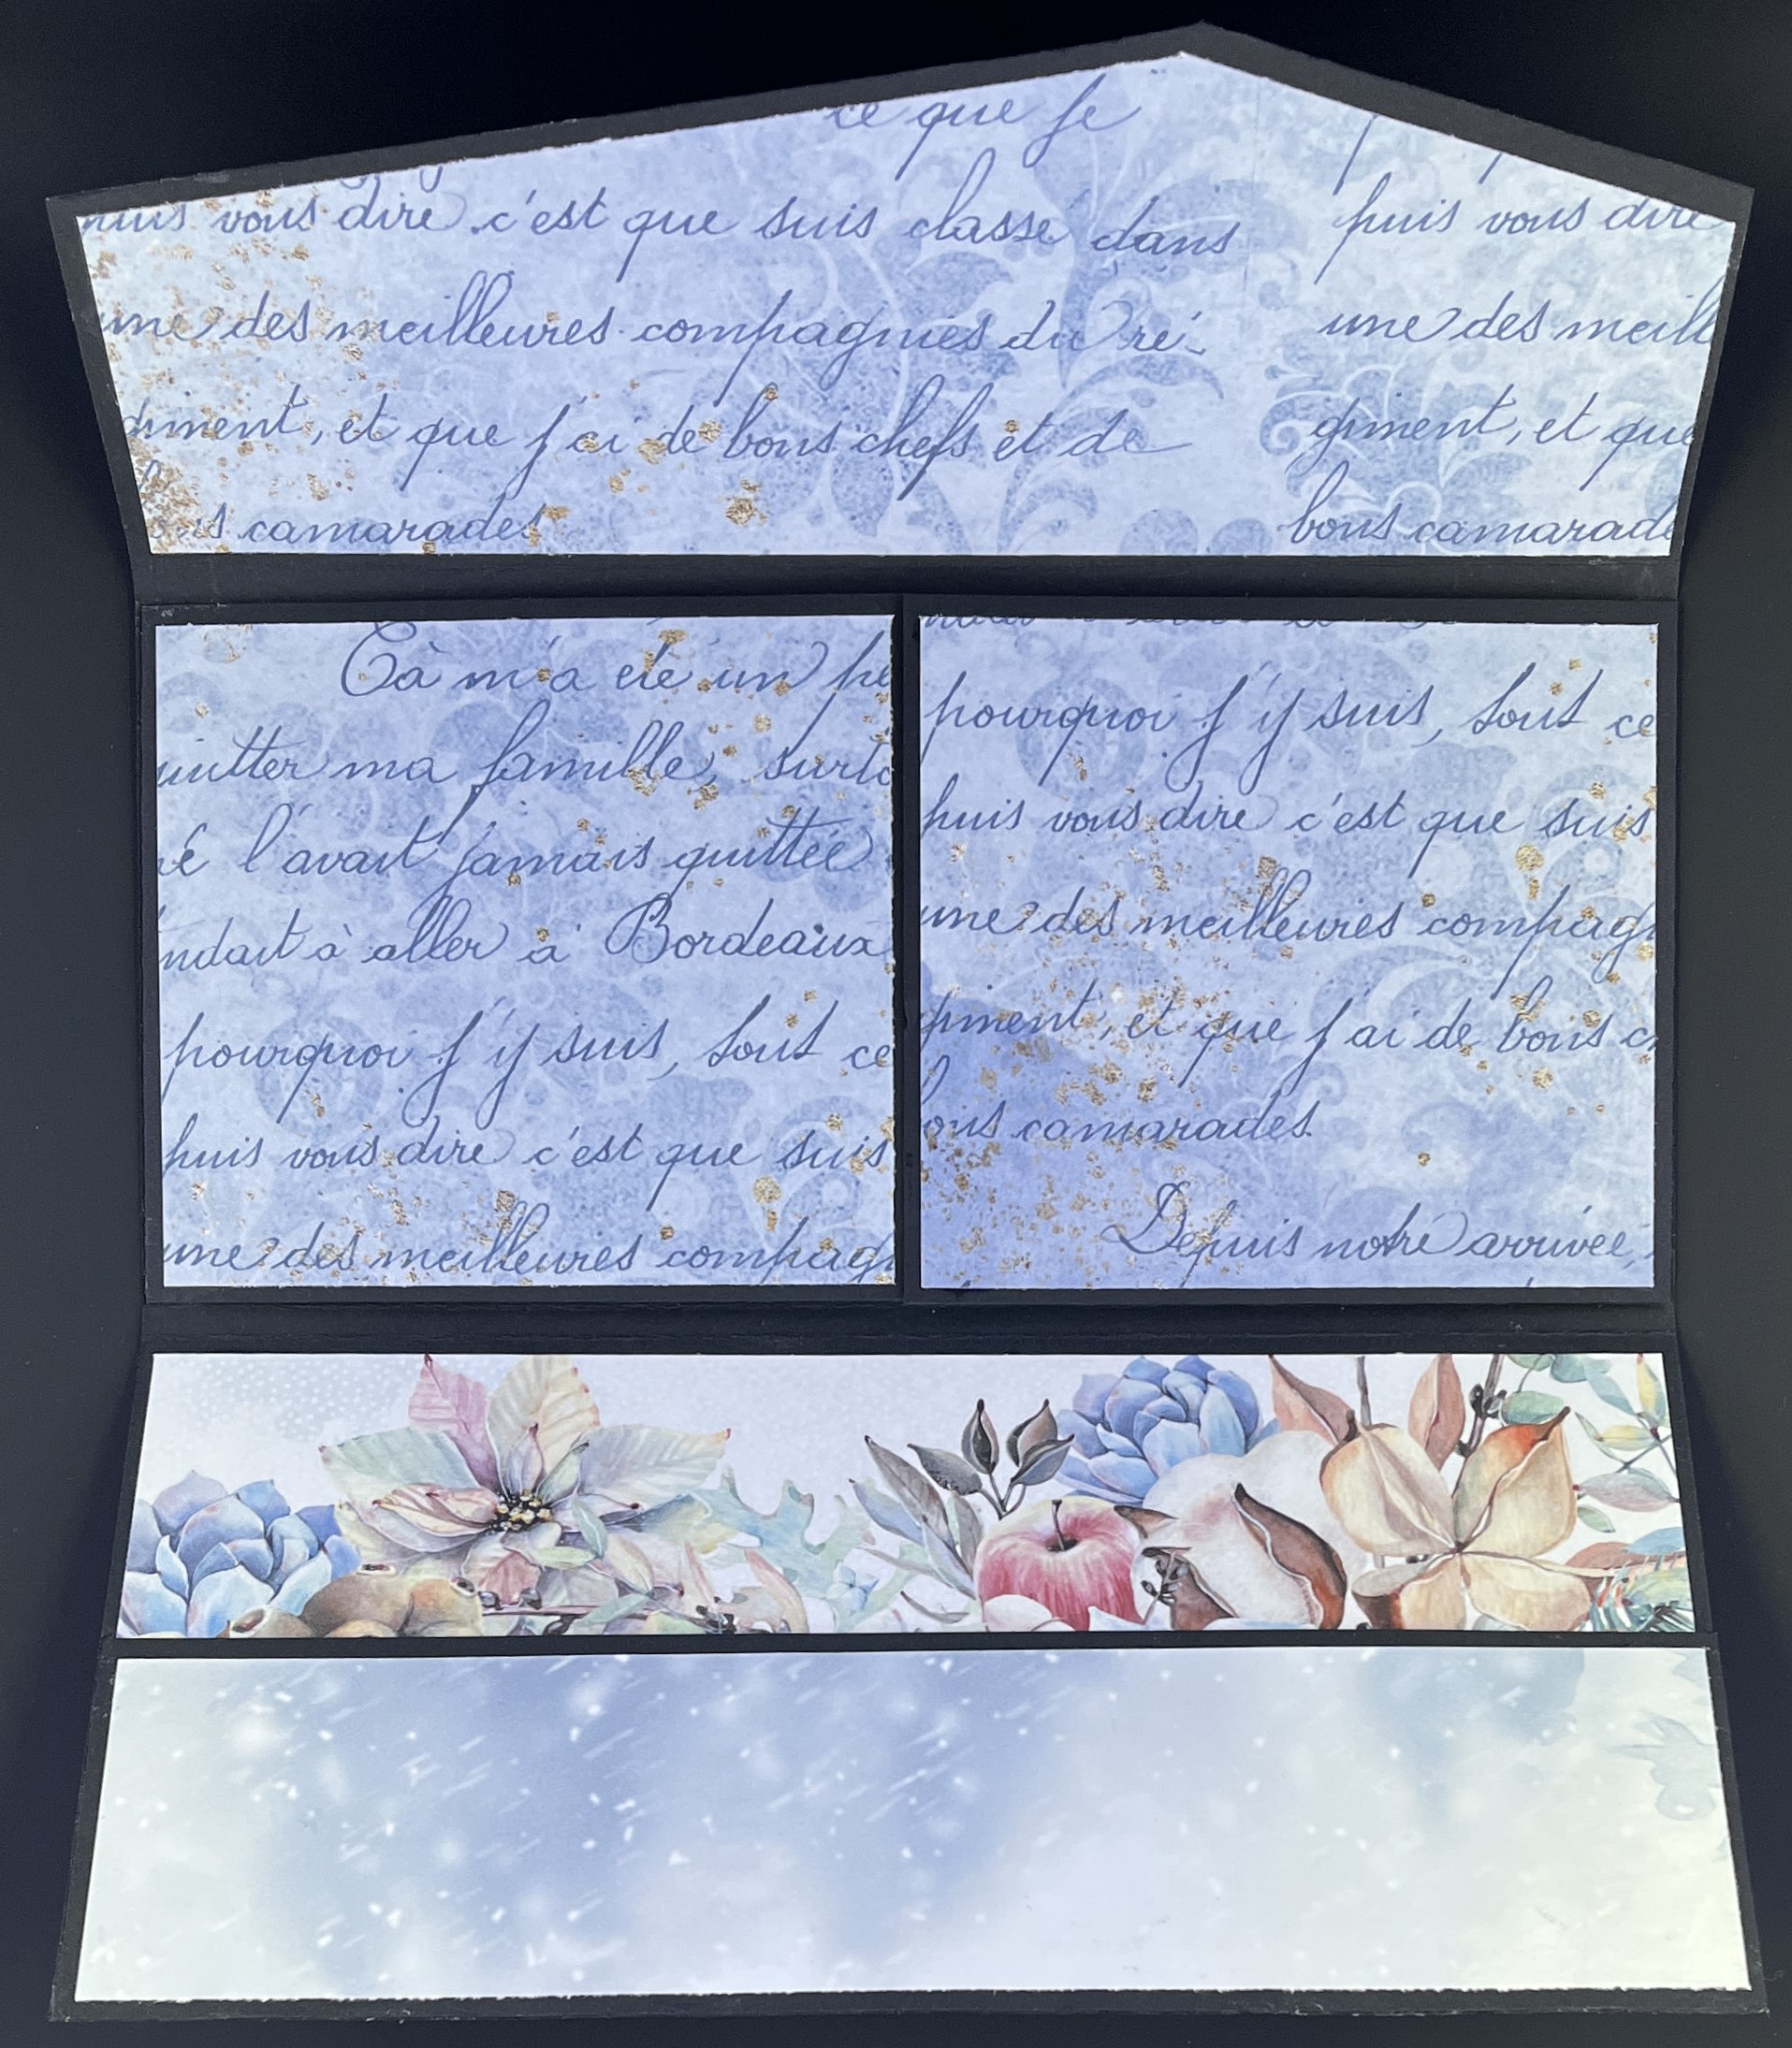 ce que je
puis vous dire c'est que suis classé dans
une des meilleures compagnies du ré-
giment, et que j'ai de bons chefs et de
bons camarades
puis vous dire
une des meill
giment, et que
bons camarade
Cà m'a été un pe
uitter ma famille, surto
né l'avait jamais quittée
ndait à aller à Bordeaux
pourquoi j'y suis, tout ce
puis vous dire c'est que suis
une des meilleures compag
pourquoi j'y suis, tout ce
puis vous dire c'est que suis
une des meilleures compag
giment, et que j'ai de bons c
bons camarades.
Depuis notre arrivée,